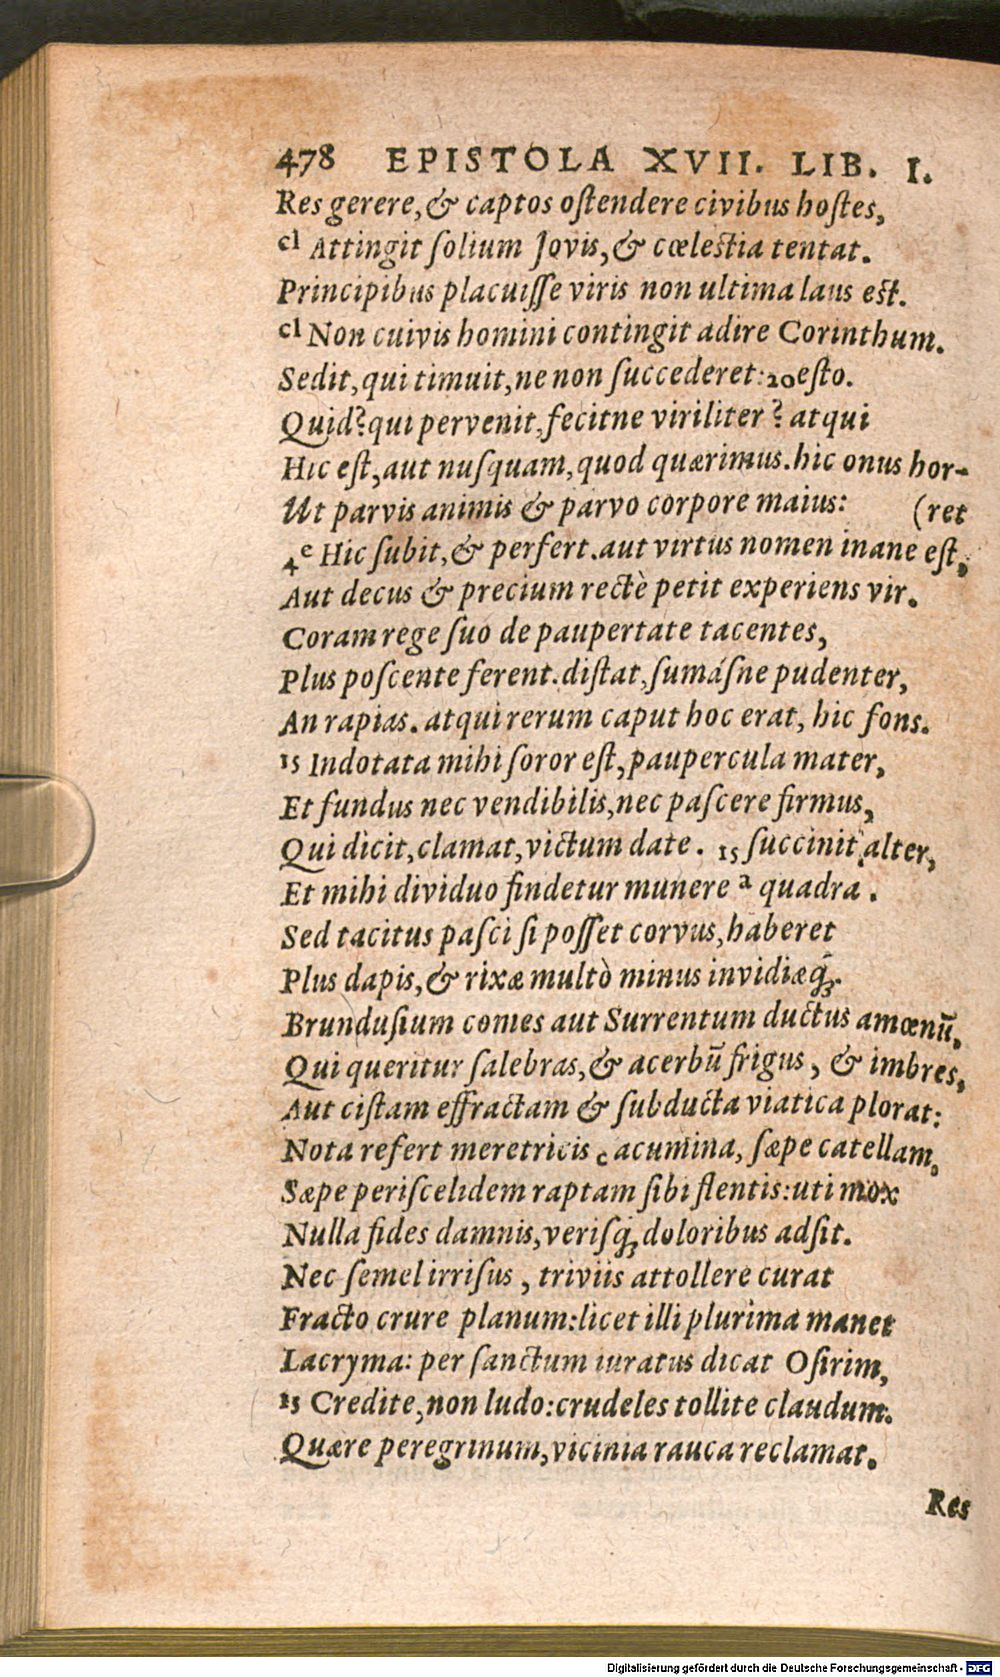 478 EPISTOLA XVII. LIB. I.
Res gerere, & captos oſtendere civibus hoſtes,
cl Attingit ſolium Jovis, & cœleſtia tentat.
Principibus placuiſſe viris non ultima laus eſt.
cl Non cuivis homini contingit adire Corinthum.
Sedit, qui timuit, ne non ſuccederet: 20 eſto.
Quid? qui pervenit, fecitne viriliter? atqui
Hic eſt, aut nuſquam, quod quærimus. hic onus hor-
Ut parvis animis & parvo corpore maius: (ret
4 e Hic ſubit, & perfert. aut virtus nomen inane eſt,
Aut decus & precium rectè petit experiens vir.
Coram rege ſuo de paupertate tacentes,
Plus poſcente ferent. diſtat, ſumáſne pudenter,
An rapias. atqui rerum caput hoc erat, hic fons.
15 Indotata mihi ſoror eſt, paupercula mater,
Et fundus nec vendibilis, nec paſcere firmus,
Qui dicit, clamat, victum date. 15 ſuccinit alter,
Et mihi dividuo findetur munere a quadra.
Sed tacitus paſci ſi poſſet corvus, haberet
Plus dapis, & rixæ multò minus invidiæq́;.
Brunduſium comes aut Surrentum ductus amœnū,
Qui queritur ſalebras, & acerbū frigus, & imbres,
Aut ciſtam effractam & ſubducta viatica plorat:
Nota refert meretricis c acumina, ſæpe catellam,
Sæpe periſcelidem raptam ſibi flentis: uti mox
Nulla fides damnis, veriſq́; doloribus adſit.
Nec ſemel irriſus, triviis attollere curat
Fracto crure planum: licet illi plurima manet
Lacryma: per ſanctum iuratus dicat Oſirim,
15 Credite, non ludo: crudeles tollite claudum.
Quære peregrinum, vicinia rauca reclamat.
Res
Digitalisierung gefördert durch die Deutsche Forschungsgemeinschaft - DFG